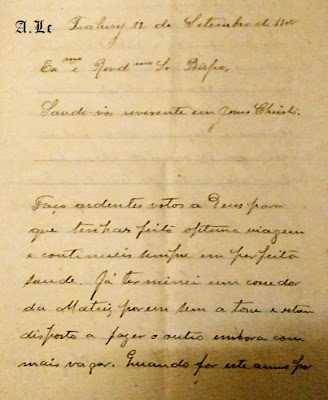 A. Lc
Trahiry 12 de Setembro de 1900
Ex.mo e Revd.mo Sr. Bispo,
Saudo-vos reverente em Jesus Christo.
Faço ardentes votos a Deus para
que tenhaes feito optima viagem
e continueis sempre em perfeita
saude. Já terminei um corredor
da Matriz, porem sem a torre e estou
disposto a fazer o outro embora com
mais vagar. Quando for este anno por